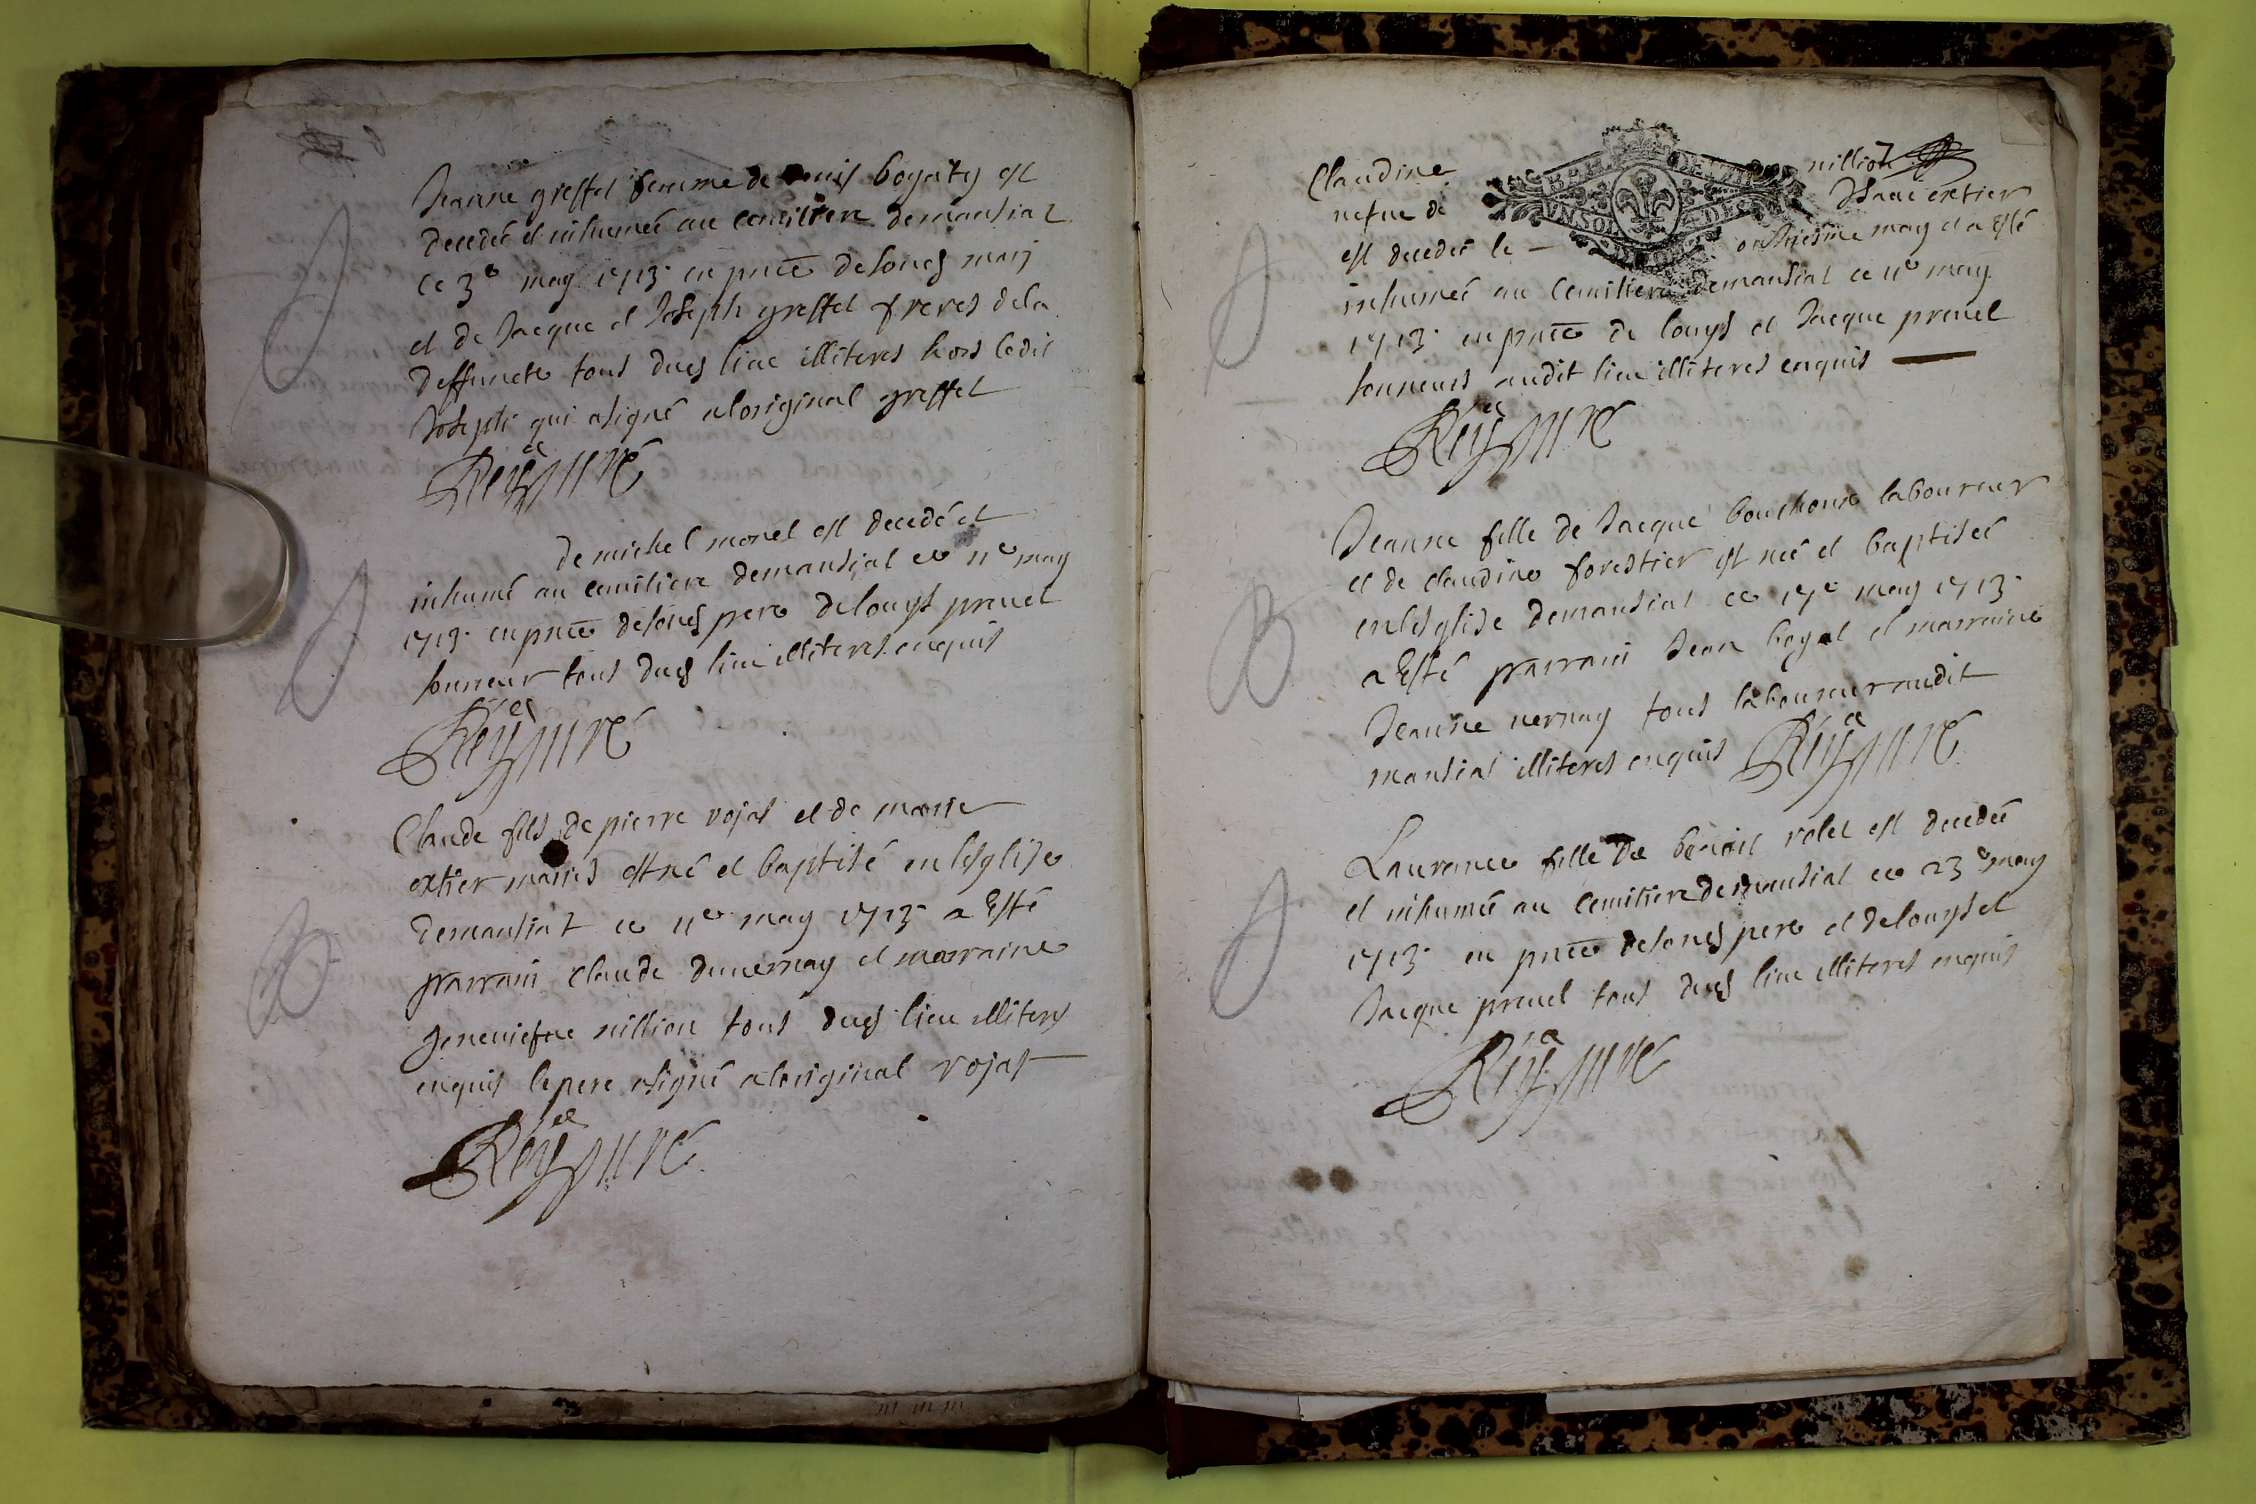 Jeanne greffet femme de bogaty est
decedeé et inhumeé au cemitiere demansiat
ce 3e may 1713. en pnce desones mary
et de Jacque et Joseph greffet freres dela
deffuncte tous dues lieu illiteres hors ledit
Joseph qui asigné aloriginal greffet
Rey curé
de michel morel est decedé et
inhumé au cemitiere demansiat ce 11e may
1713. en pnce desones pere delouys preuel
sonneur tous dues lieu illiteres enquis
Rey curé
Claude fils de pierre vojas et de marie
extier mariés est né et baptisé en lesglise
demansiat ce 11e may 1713. a Esté
parrain claude duuernay et marraine
Jeneuiefue nillion tous dues lieu illiteres
enquis lepere asigné aloriginal vojas
Rey curé
Claudine nillion
uefue de Isaac extier
est decedeé le onziesme may et a Esté
inhumeé au cemitiere demansiat ce 11e may
1713. en pnce de louys et Jacque preuel
sonneurs audit lieu illiteres enquis
Rey curé
Jeanne fille de Jacque bouchoux laboureur
et de claudine forestier est neé et baptiseé
en lesglise demansiat ce 17e may 1713.
a Esté parrain Jean et marraine
Jeanne uernay tous laboureur audit
mansiat illiteres enquis Rey curé
Laurence fille de benoit rolet est decedeé
et inhumeé au cemitiere demansiat ce 23e may
1713. en pnce desones pere et delouys et
Jacque preuel tous dues lieu illiteres enquis
Rey curé